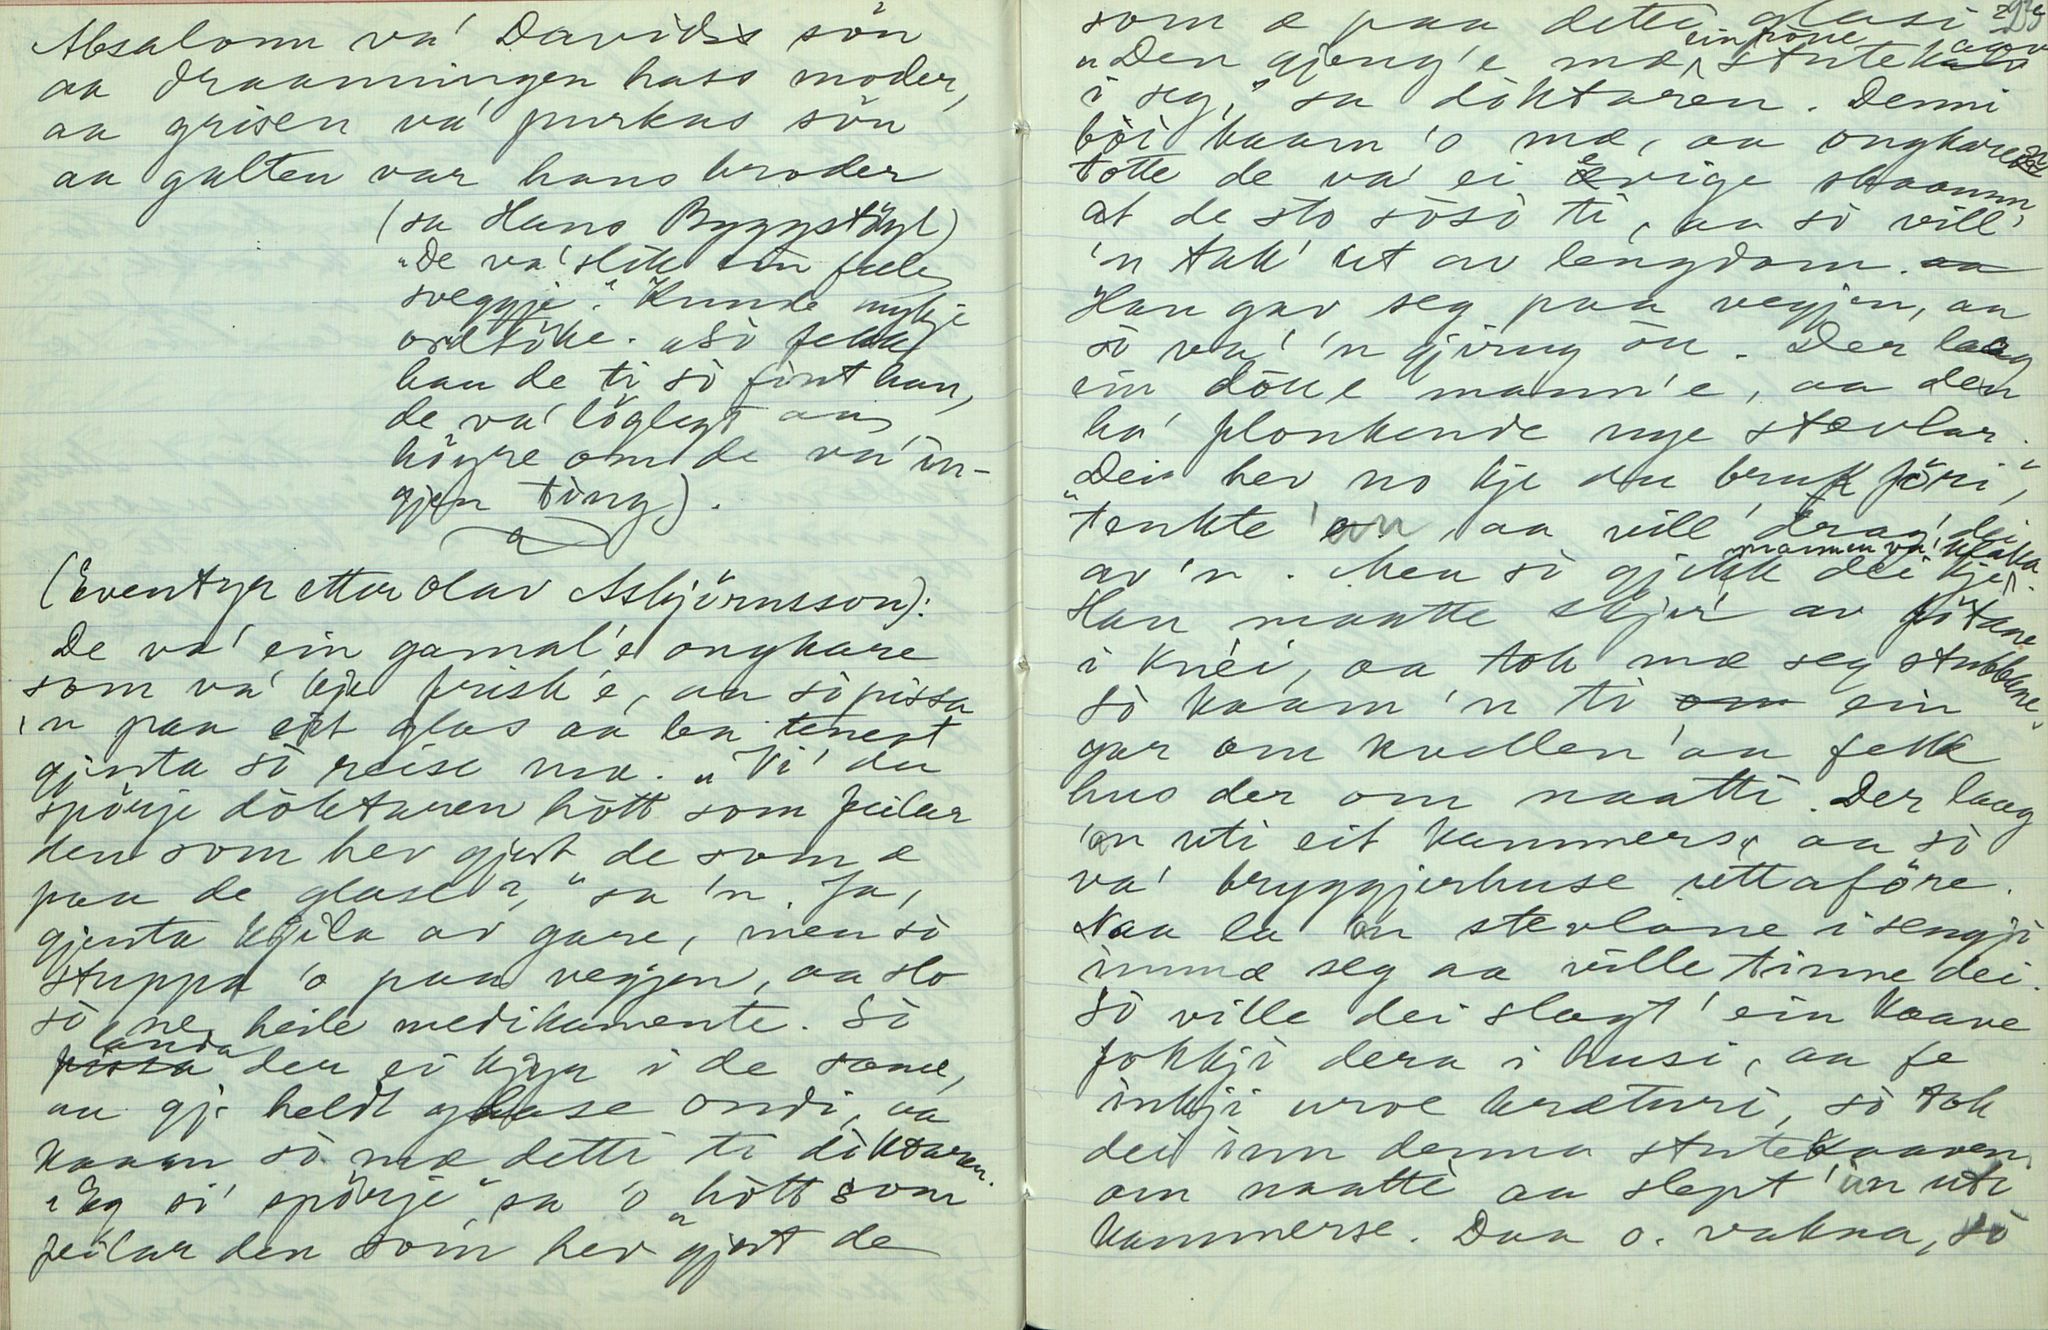 Absalonn va' Davids sön
aa draanningen hass moder,
aa grisen va' purkas sön
aa galten var hans broder
(sa Hans Byggstöyl)
"De va' slik ein fæle
sveggje." Kunde mykje
ordtöke. "Sò fekk
han de ti sò fint han,
de va' löglegt aa
höyre om de va' in-
gjen ting).
(Eventyr etter Olav Asbjörnsson):
De va' ein gamal'e ongkare
som va' kje frisk'e, aa sò pissa
'n paa eit glas aa ba tenest
gjenta sò reise mæ. "Vi' du
spörje dòktaren hòtt som feilar
den som hev gjort de som æ
paa de glase?," sa 'n. Ja,
gjenta kjila av gare, men sò
stuppa 'o paa vegjen, aa slo
sò ne heile medikamente. Sò
landa der ei kjyr i de same,
aa gj. heldt glase ondi, aa
kaam sò mæ detti ti dòktaren.
"Eg si' spörje" sa 'o "hòtt som
feilar den som hev gjort de
som æ paa detti glasi 239
"Den gjeng'e mæ ein pöne stutekaav
i seg," sa dòktaren. Denni
bòi kaam 'o mæ, aa ongkaren
totte de va' ei evige skaamm
at de sto sòsò ti, aa sò vill'
'n tak' ut av lengdom.
Han gav seg paa vegjen, aa
sò va' 'n gjing ön. Der laag
ein döue mann'e, aa den
ha' flonkende nye stevlar.
Dei hev no kje du bruk föri,"
"tenkte 'an, aa vill' drag' dei
av 'n. Men sò gjekk dei kje, mannen va' klaka.
Han maatte skjer' av fötane
i knèi, aa tok mæ seg stubbane.
Sò kaam 'n ti ein
gar om kvellen aa fekk
hus der om naatti. Der laag
'n uti eit kammers, aa sò
va' bryggjerhuse uttaföre.
Naa la 'n stevlane i sengji
innmæ seg aa ville tinne dei.
Sò ville dei slagt' ein kaave
fokkji dera i husi, aa fe
inkji urve kræturi, sò tok
dei inn denna stutekaaven
om naatti aa slept' 'n uti
kammerse. Daa o. vakna, sò